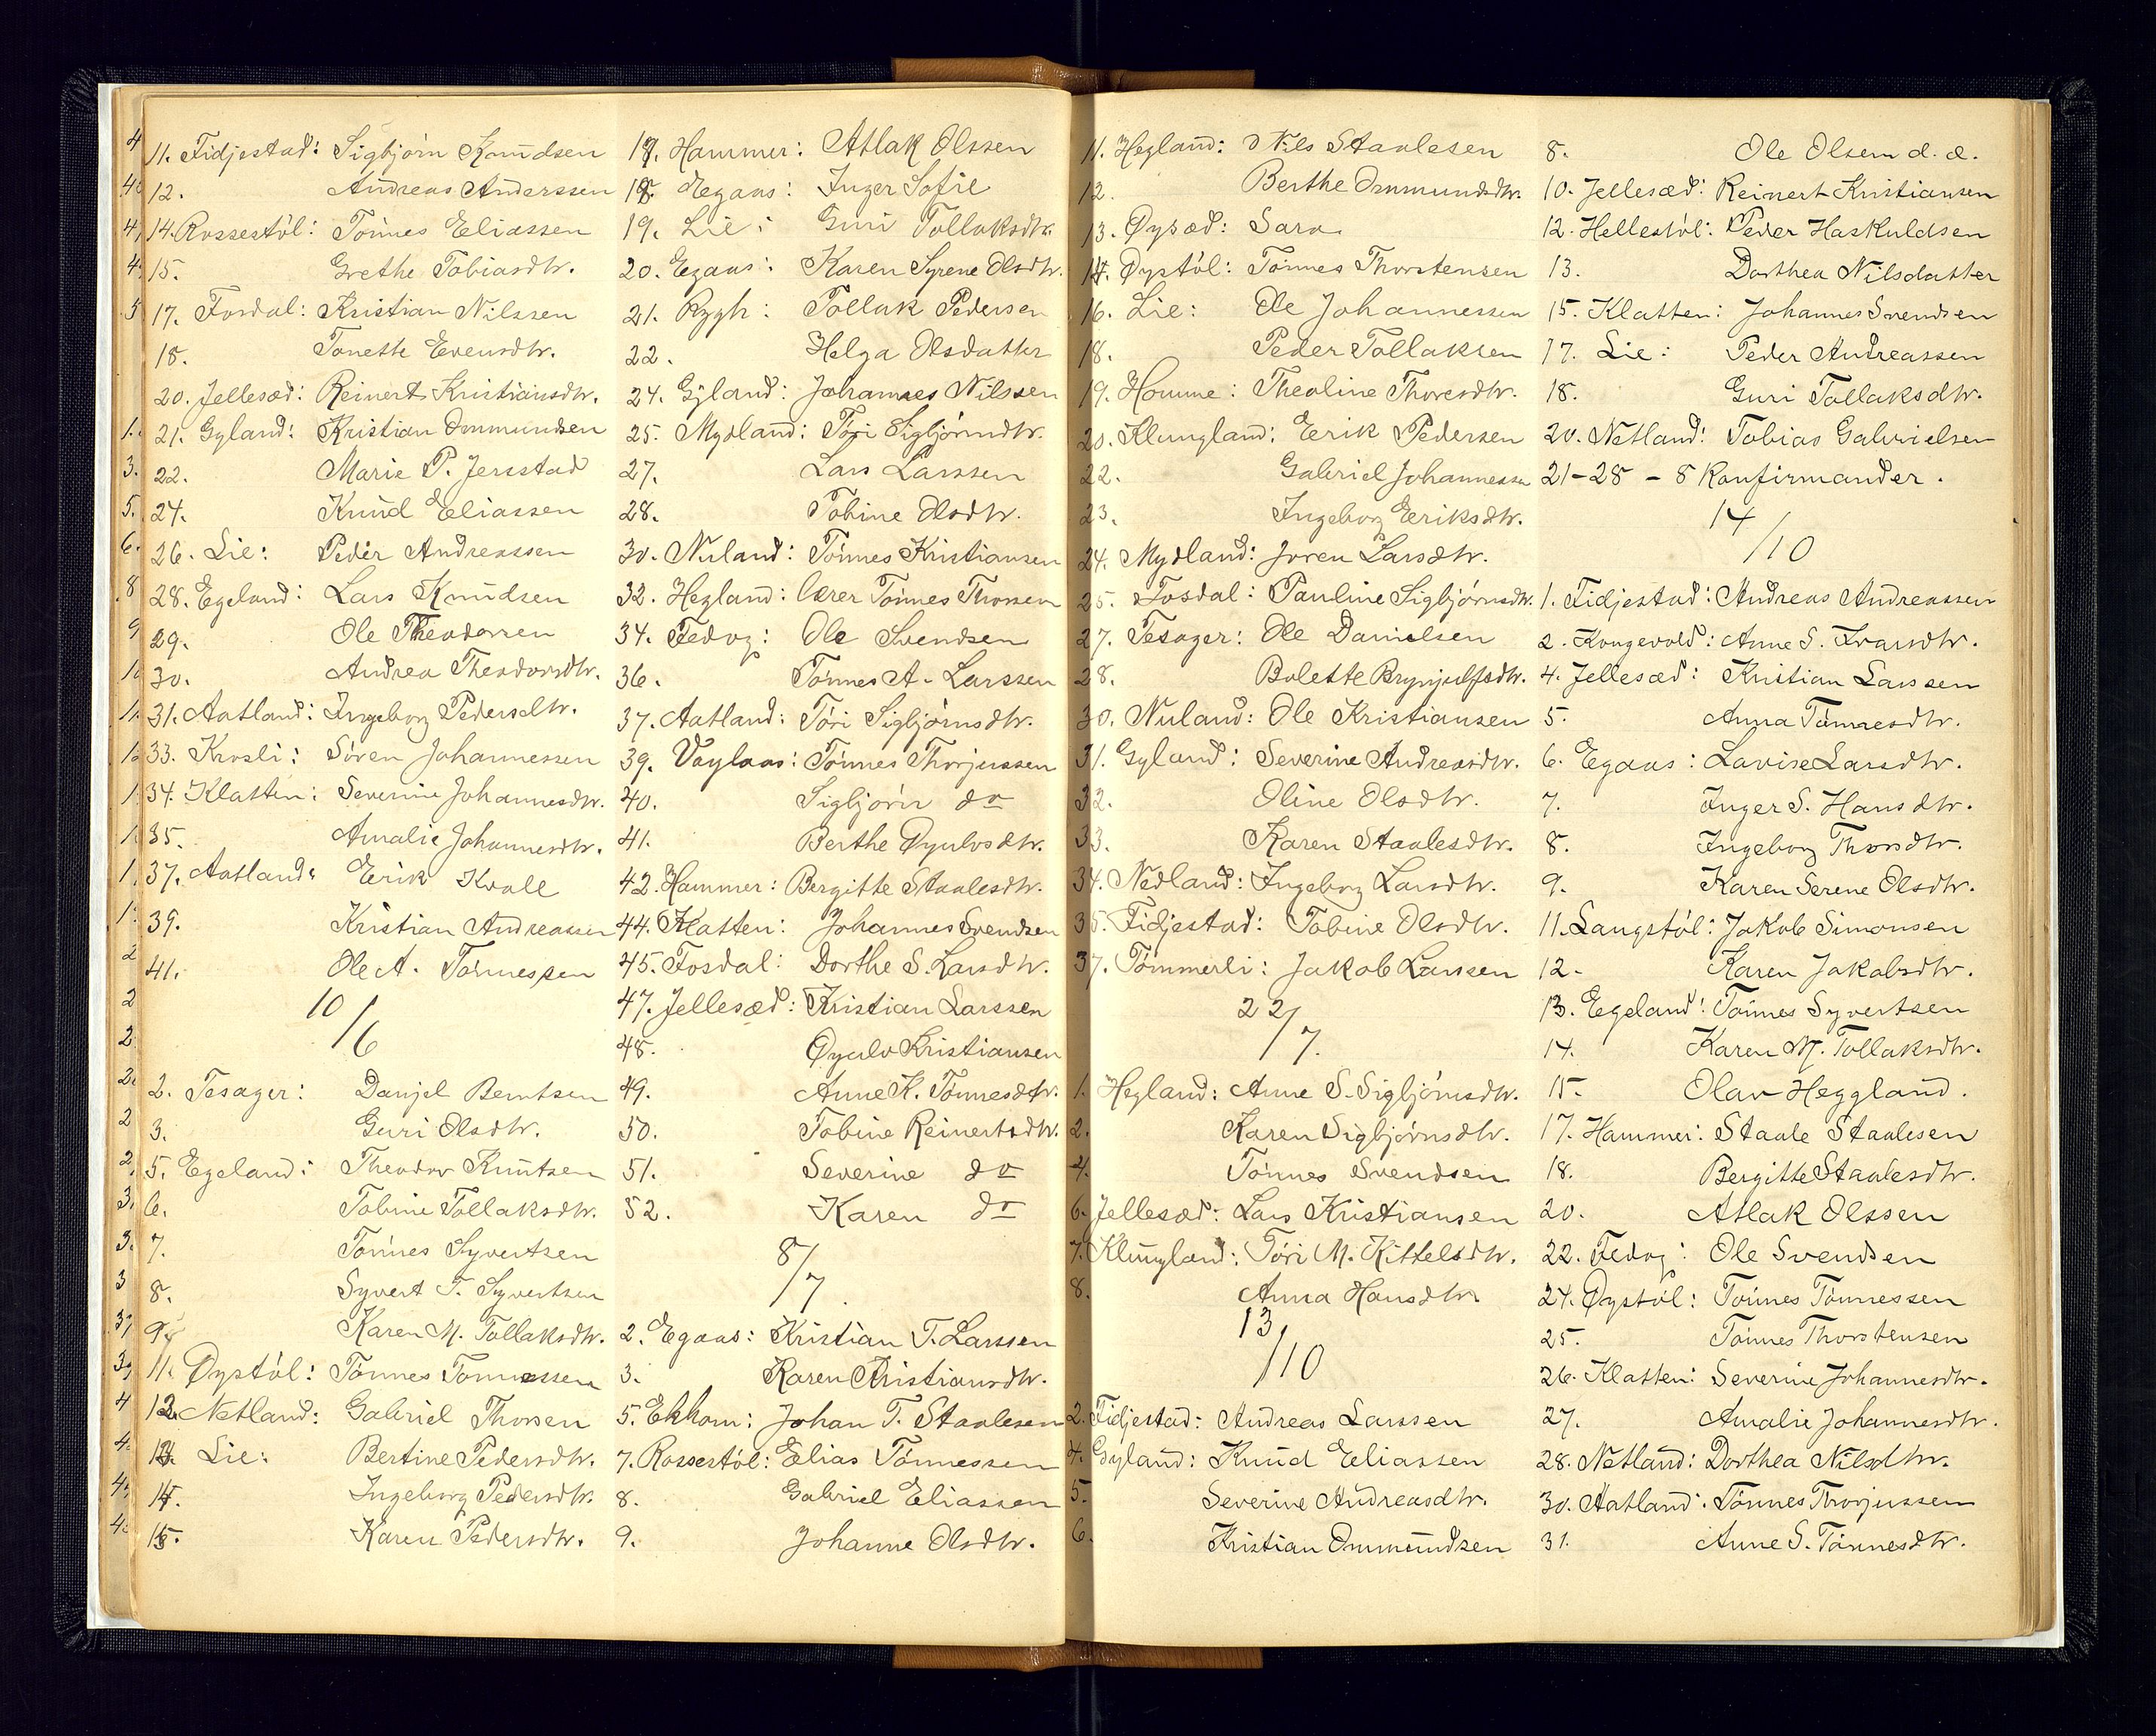 11. Fidjestad: Sigbjörn Knudsen
12. Andreas Anderssen
14. Rossestöl: Tönnes Eliassen
15. Grethe Tobiasdtr.
17. Fosdal: Kristian Nilssen
18. Tonette Evensdtr.
20. Jellesæd: Reinert Kristiansdtr.
21. Gyland: Kristian Ommundsen
22. Marie P. Jersstad
24. Knud Eliassen
26. Lie: Peder Andreassen
28. Egeland: Lars Knudsen
29. Ole Theodorsen
30. Andrea Theodorsdtr.
31. Aatland: Ingeborg Pedersdtr.
33. Krosli: Sören Johannessen
34. Klatten: Severine Johannesdtr.
35. Amalie Johannesdtr.
37. Aatland: Eerik Kvale
39. Kristian Andreassen
41. Ole A. Tönnessen
10/6
2. Tesager: Danjel Berntsen
3. Guri Olsdtr.
5. Egeland: Theodor Knutsen
6. Tobine Tollaksdtr.
7. Tönnes Syvertsen
8. Syvert T. Syvertsen
9. Karen M. Tollaksdtr.
11. Öystöl: Tönnes Tönnessen
12. Netland: Gabriel Thorsen
13. Lie: Bertine Pedersdtr.
14. Ingeborg Pedersdtr.
15. Karen Pedersdtr.
17. Hammer: Atlak Olssen
18. Egaas: Inger Sofie
19. Lie: Guri Tollaksdtr.
20. Egaas: Karen Syrene Olsdtr.
21. Rygh: Tollak Pedersen
22. Helga Olsdatter
24. Gyland: Johannes Nilssen
25. Mydland: Töri Sigbjörnsdtr.
27. Lars Larssen
28. Tobine Olsdtr.
30. Nuland: Tönnes Kristiansen
32. Hegland: Lærer Tönnes Thorsen
34. Fedog: Ole Svendsen
36. Tönnes A. Larssen
37. Aatland: Töri Sigbjörnsdtr.
39. Vaylaas: Tönnes Thorjussen
40. Sigbjörn do
41. Berthe Öyulvsdtr.
42. Hammer: Bergitte Staalesdtr.
44. Klatten: Johannes Svendsen
45. Fosdal: Dorthe S. Larsdtr.
47. Jellesæd: Kristian Larssen
48. Öyulv Kristiansen
49. Anne K. Tönnesdtr.
50. Tobine Reinertsdtr.
51. Severine do
52. Karen do
8/7
2. Egaas: Kristian T. Larssen
3. Karen Kristiansdtr.
5. Ekhom: Johan T. Staalesen
7. Rossestöl: Elias Tönnessen
8. Gabriel Eliassen
9. Johanne Olsdtr.
11. Hegland: Nils Staalesen
12. Berthe Ommundsdtr.
13. Öysæd: Sara
14. Öystöl: Tönnes Thorstensen
16. Lie: Ole Johannessen
18. Peder Tollaksen
19. Homme: Theoline Thoresdtr.
20. Klungland: Eerik Pedersen
22. Gabriel Johannessen
23. Ingeborg Eeriksdtr.
24. Mydland: Joren Larsdtr.
25. Fosdal: Pauline Sigbjörnsdtr.
27. Tesager: Ole Danielsen
28. Bolette Brynjulfsdtr.
30. Nuland: Ole Kristiansen
31. Gyland: Severine Andreasdtr.
32. Oline Olsdtr.
33. Karen Staalesdtr.
34. Nedland: Ingeborg Larsdtr.
35. Fidjestad: Tobine Olsdtr.
37. Tömmerli: Jakob Larssen
22/7.
1. Hegland: Anne S. Sigbjörnsdtr.
2. Karen Sigbjörnsdtr.
4. Tönnes Svendsen
6. Jellesæd: Lars Kristiansen
7. Klungland: Töri M. Kittelsdtr.
8. Anna Hansdtr.
13/10
2. Fidjestad: Andreas Larssen
4. Gyland: Knud Eliassen
5. Severine Andreasdtr.
6. Kristian Ommundsen
8. Ole Olsen d. æ.
10. Jellesæd: Reinert Kristiansen
12. Hellestöl: Peder Haskuldsen
13. Dorthea Nilsdatter
15. Klatten: Johannes Svendsen
17. Lie: Peder Andreassen
18. Guri Tollaksdtr.
20. Netland: Tobias Gabrielsen
21-28 - 8 Konfirmander.
14/10
1. Fidjestad: Andreas Andreassen
2. Kongevold: Anne S. Ivarsdtr.
4. Jellesæd: Kristian Larssen
5. Anna Tönnesdtr.
6. Egaas: Lavise Larsdtr.
7. Inger S. Hansdtr.
8. Ingeborg Thorsdtr.
9. Karen Serene Olsdtr.
11. Langstöl: Jakob Simonsen
12. Karen Jakobsdtr.
13. Egeland: Tönnes Syvertsen
14. Karen M. Tollaksdtr.
15. Olav Heggland.
17. Hammer: Staale Staalesen
18. Bergitte Staalesdtr.
20. Atlak Olssen
22. Fedog: Ole Svendsen
24. Öystöl: Tönnes Tönnessen
25. Tönnes Thorstensen
26. Klatten: Severine Johannesdtr.
27. Amalie Johannesdtr.
28. Netland: Dorthea Nilsdtr.
30. Aatland: Tönnes Thorjussen
31. Anne S. Tönnesdtr.